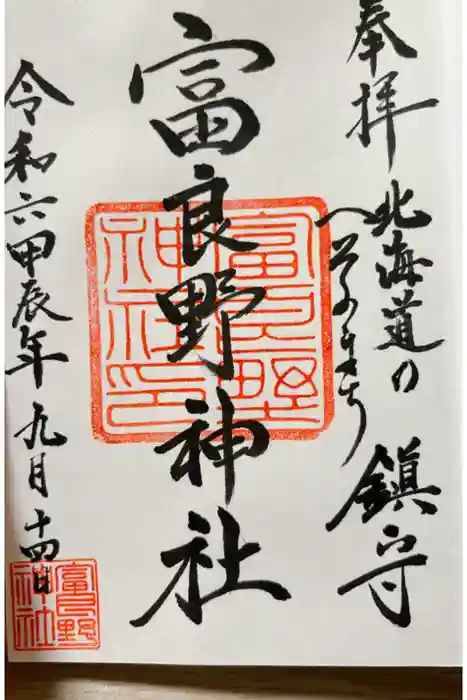 奉拝
北海道の
へそのまち
鎮守
富良野神社
富良野
神社印
令和六甲辰年 九月十四日
富良野
神社